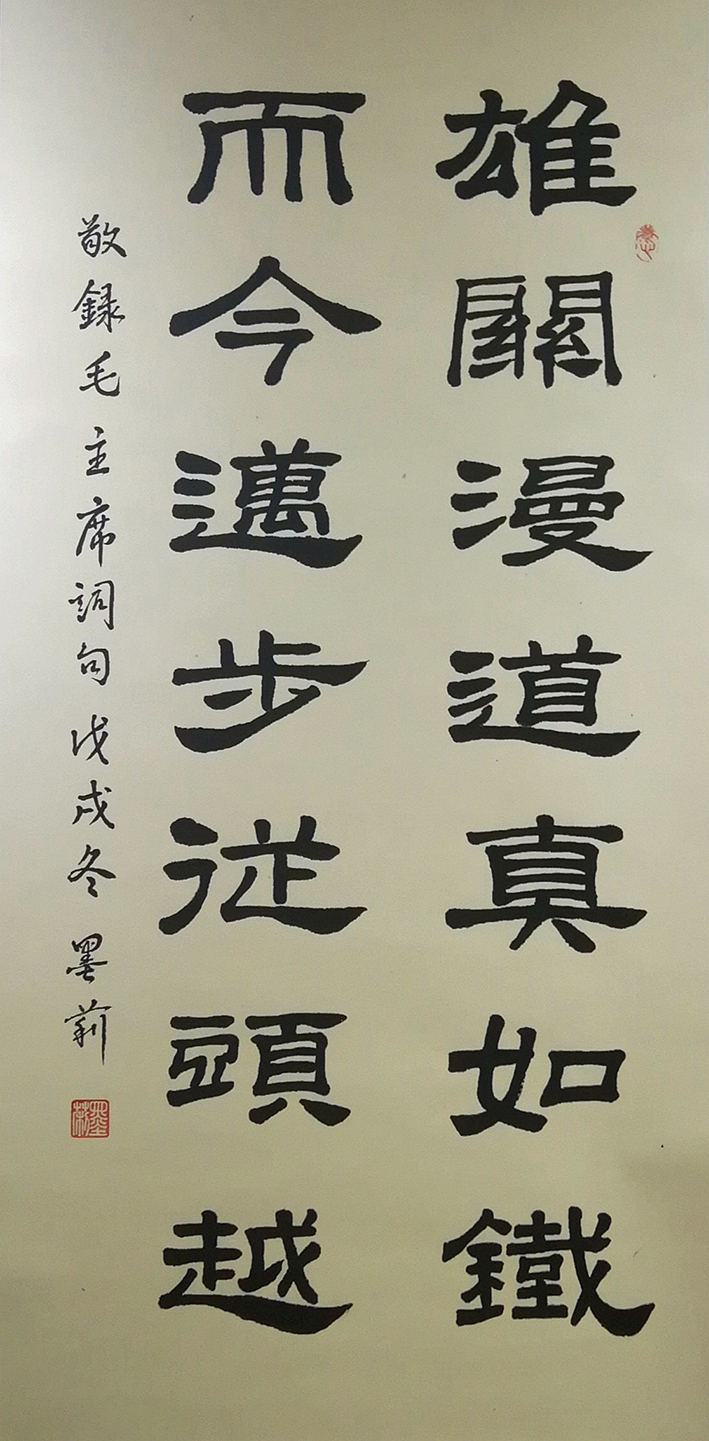 雄關漫道真如鐵
而今邁步從頭越
敬録毛主席詞句戊戌冬墨莉
墨莉